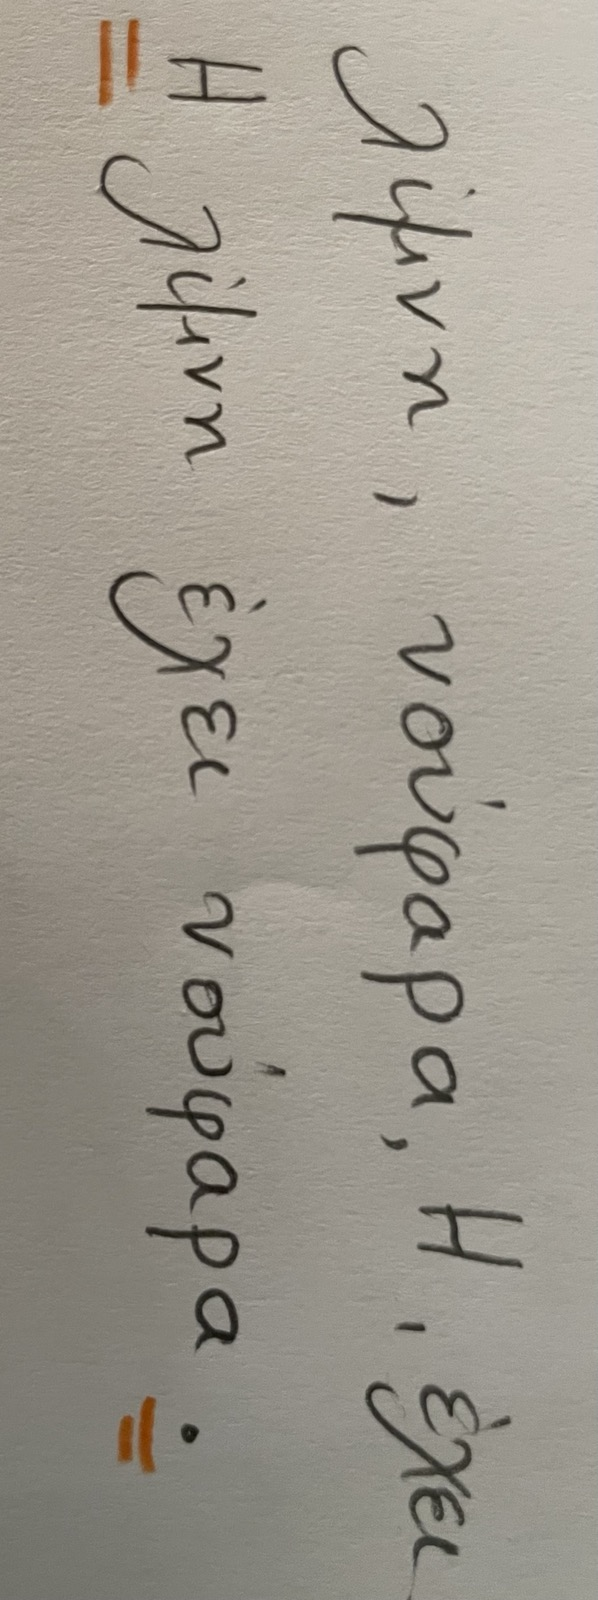 λίμνη, νούφαρα, Η, έχει
Η λίμνη έχει νούφαρα.